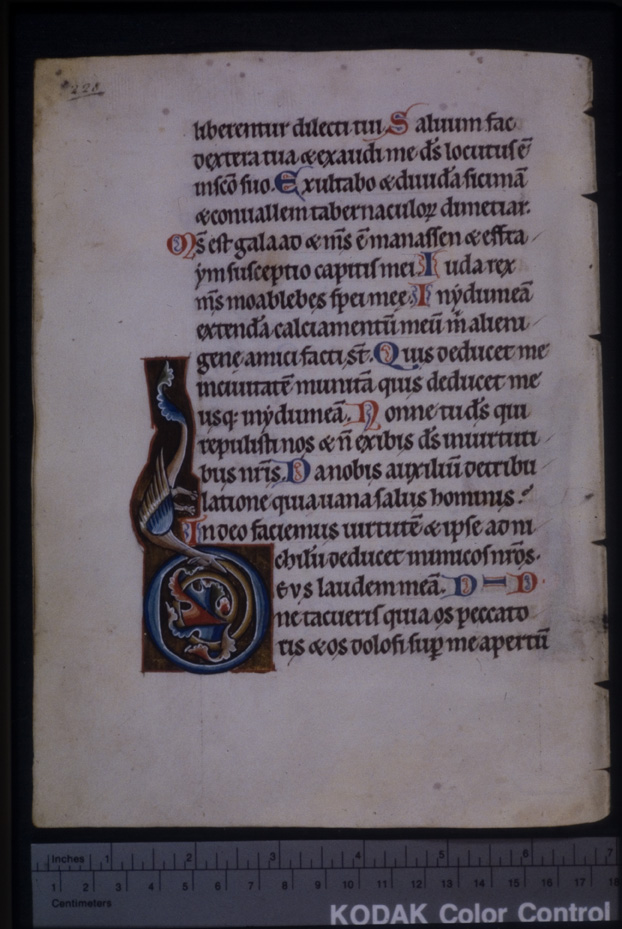 228
liberentur dilecti tui Saluum fac
dextera tua & exaudi me d̄s locutus ē
in sc̄o suo. Exultabo & diuidā sicimā
& conuallem tabernaculoꝝ dimetiar.
M̄s est galaad & m̄s ē manassen & effra
ym susceptio capitis mei Iuda rex
m̄s moab lebes spei mee. In ydumeā
extendā calciamentū meū m̄ alieni
gene amici facti st̄. Quis deducet me
in ciuitatē munitā quis deducet me
usq; in ydumeā. Nonne tu d̄s qui
repulisti nos & n̄ exibis d̄s in uirtuti
bus nr̄is. Da nobis auxiliū de tribu
latione quia uana salus hominis.
In deo faciemus uirtutē & ipse ad ni
chilū deducet inimicos nr̄os.
DEVS laudem meā. D D
ne tacueris quia os peccato
ris & os dolosi sup̄ me apertū
Inches 1 2 3 4 5 6 7
1 2 3 4 5 6 7 8 9 10 11 12 13 14 15 16 17 18
Centimeters
KODAK Color Control